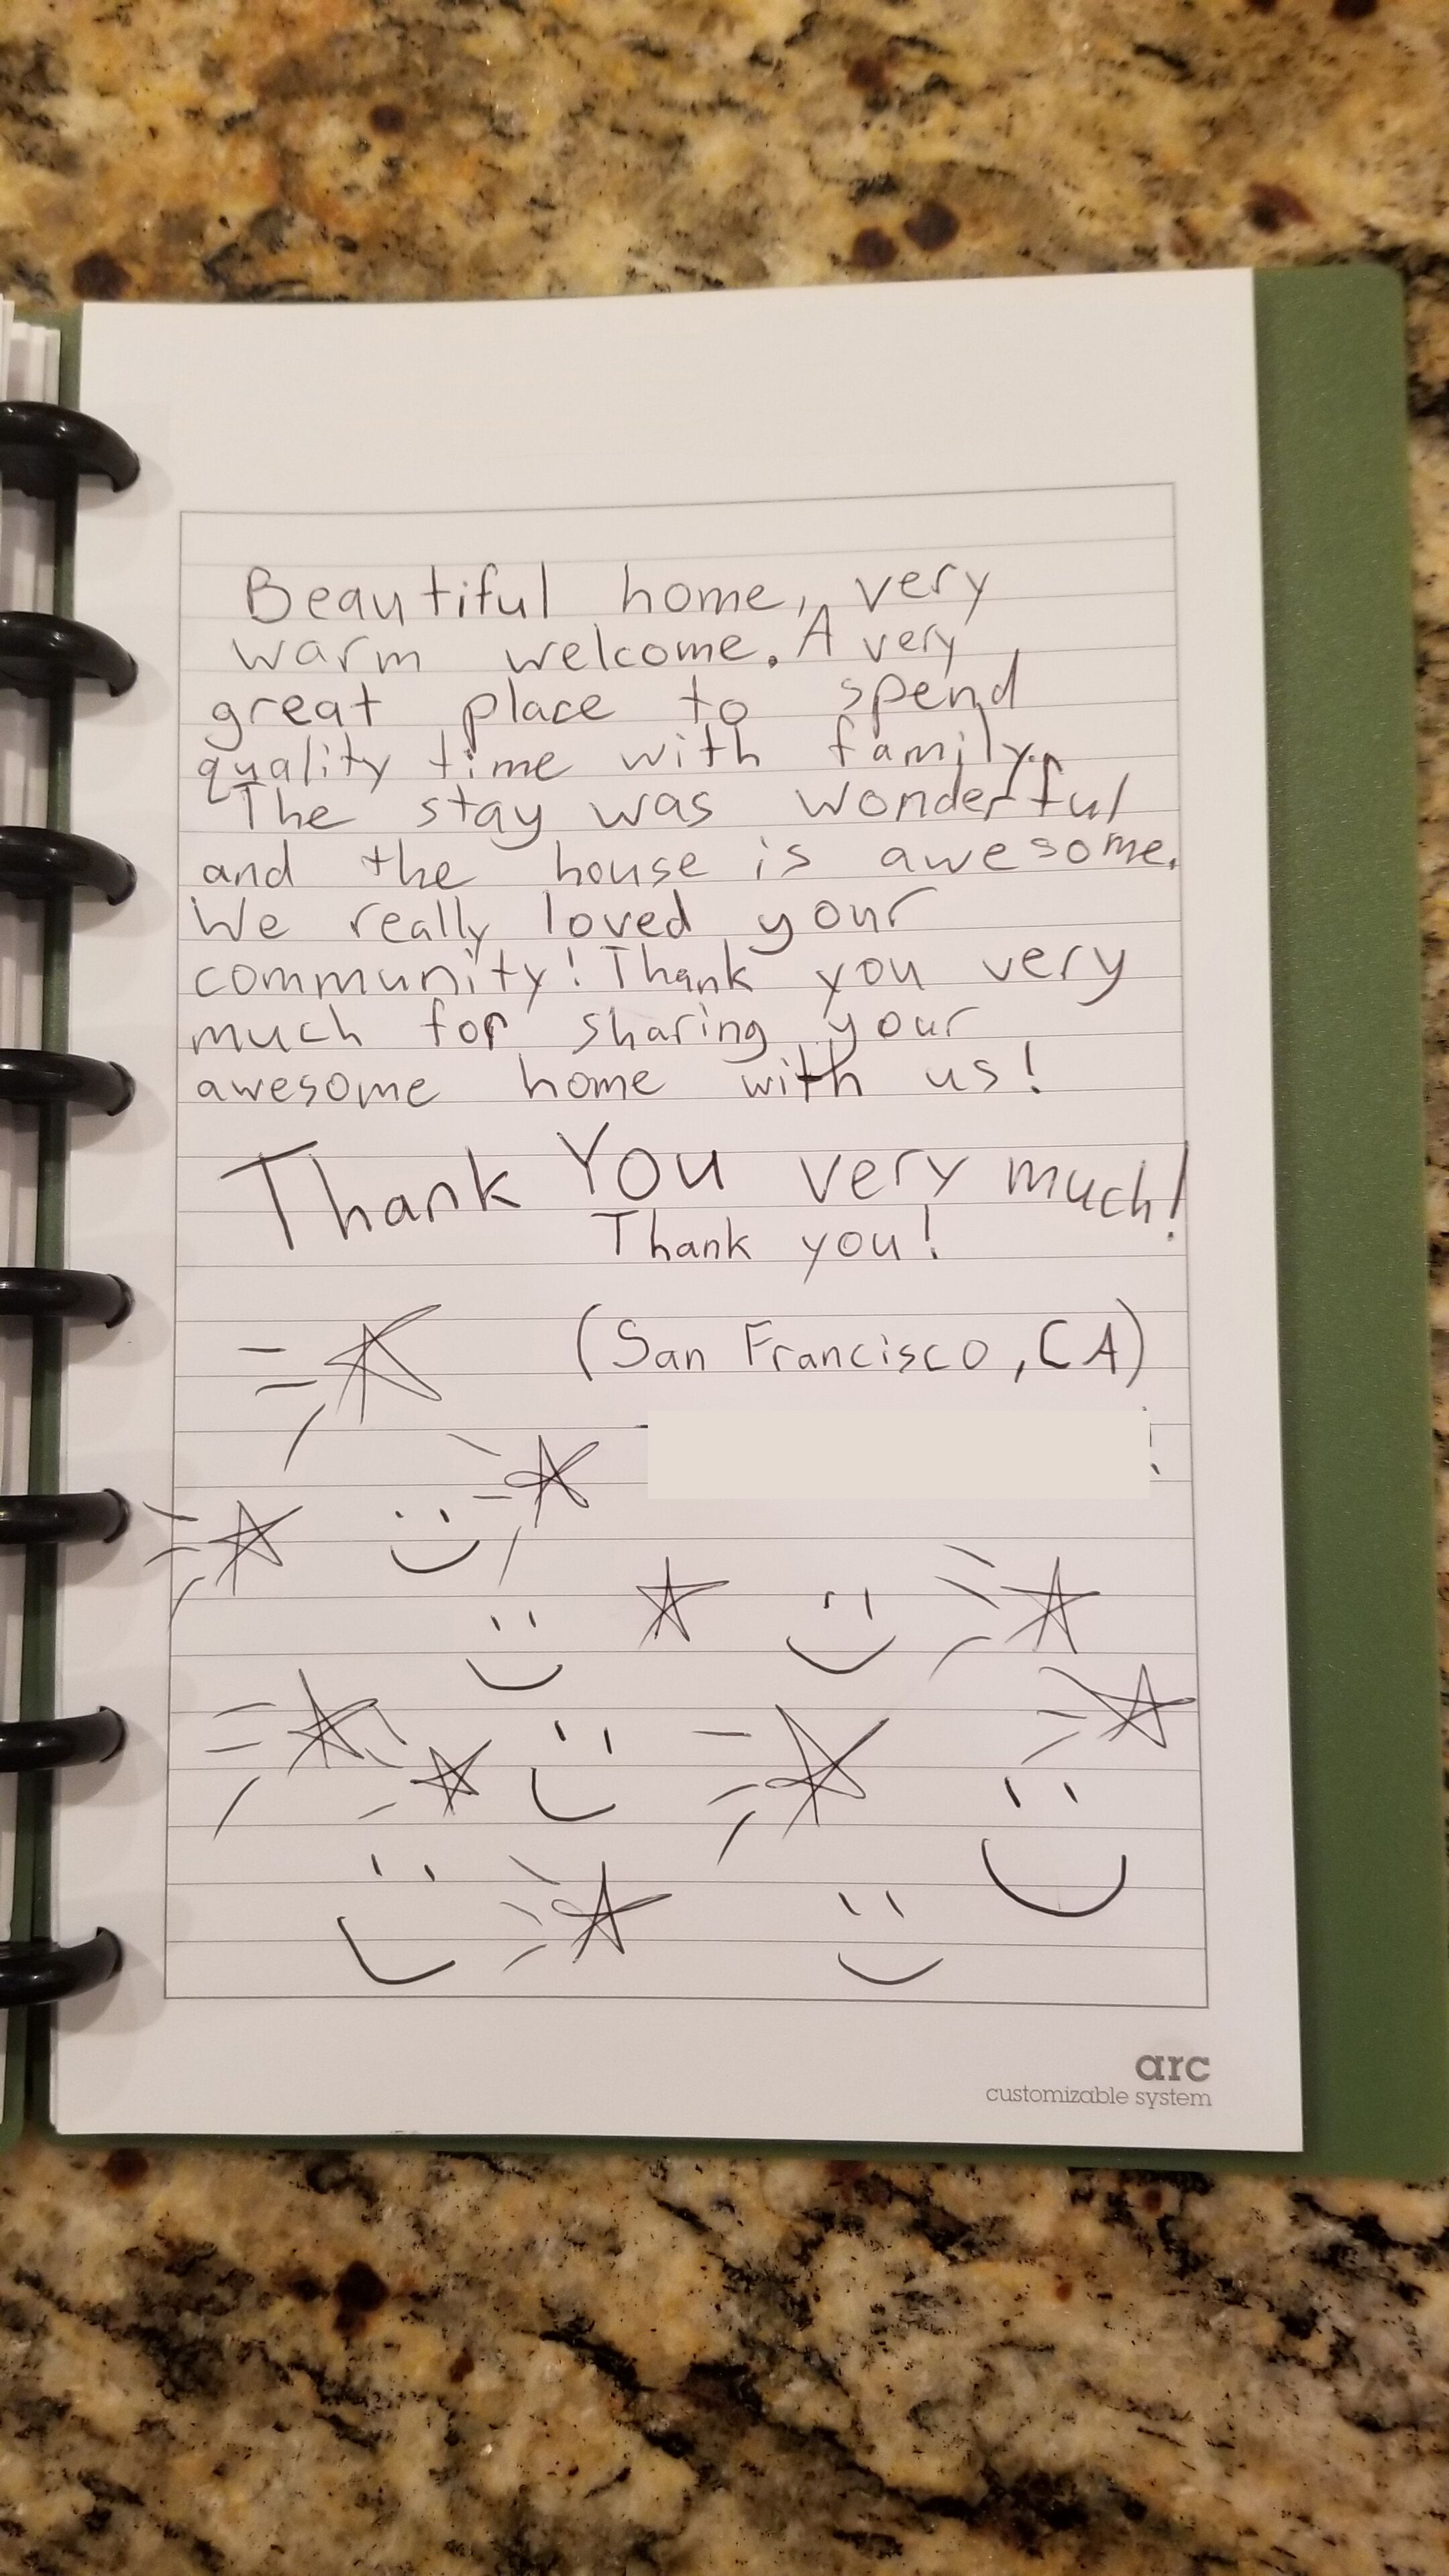 Beautiful home, very
warm welcome. A very
great place to spend
quality time with family.
The stay was wonderful
and the house is awesome.
We really loved your
community! Thank you very
much for sharing your
awesome home with us!
Thank You very much!
Thank you!
(San Francisco, CA)
arc
customizable system